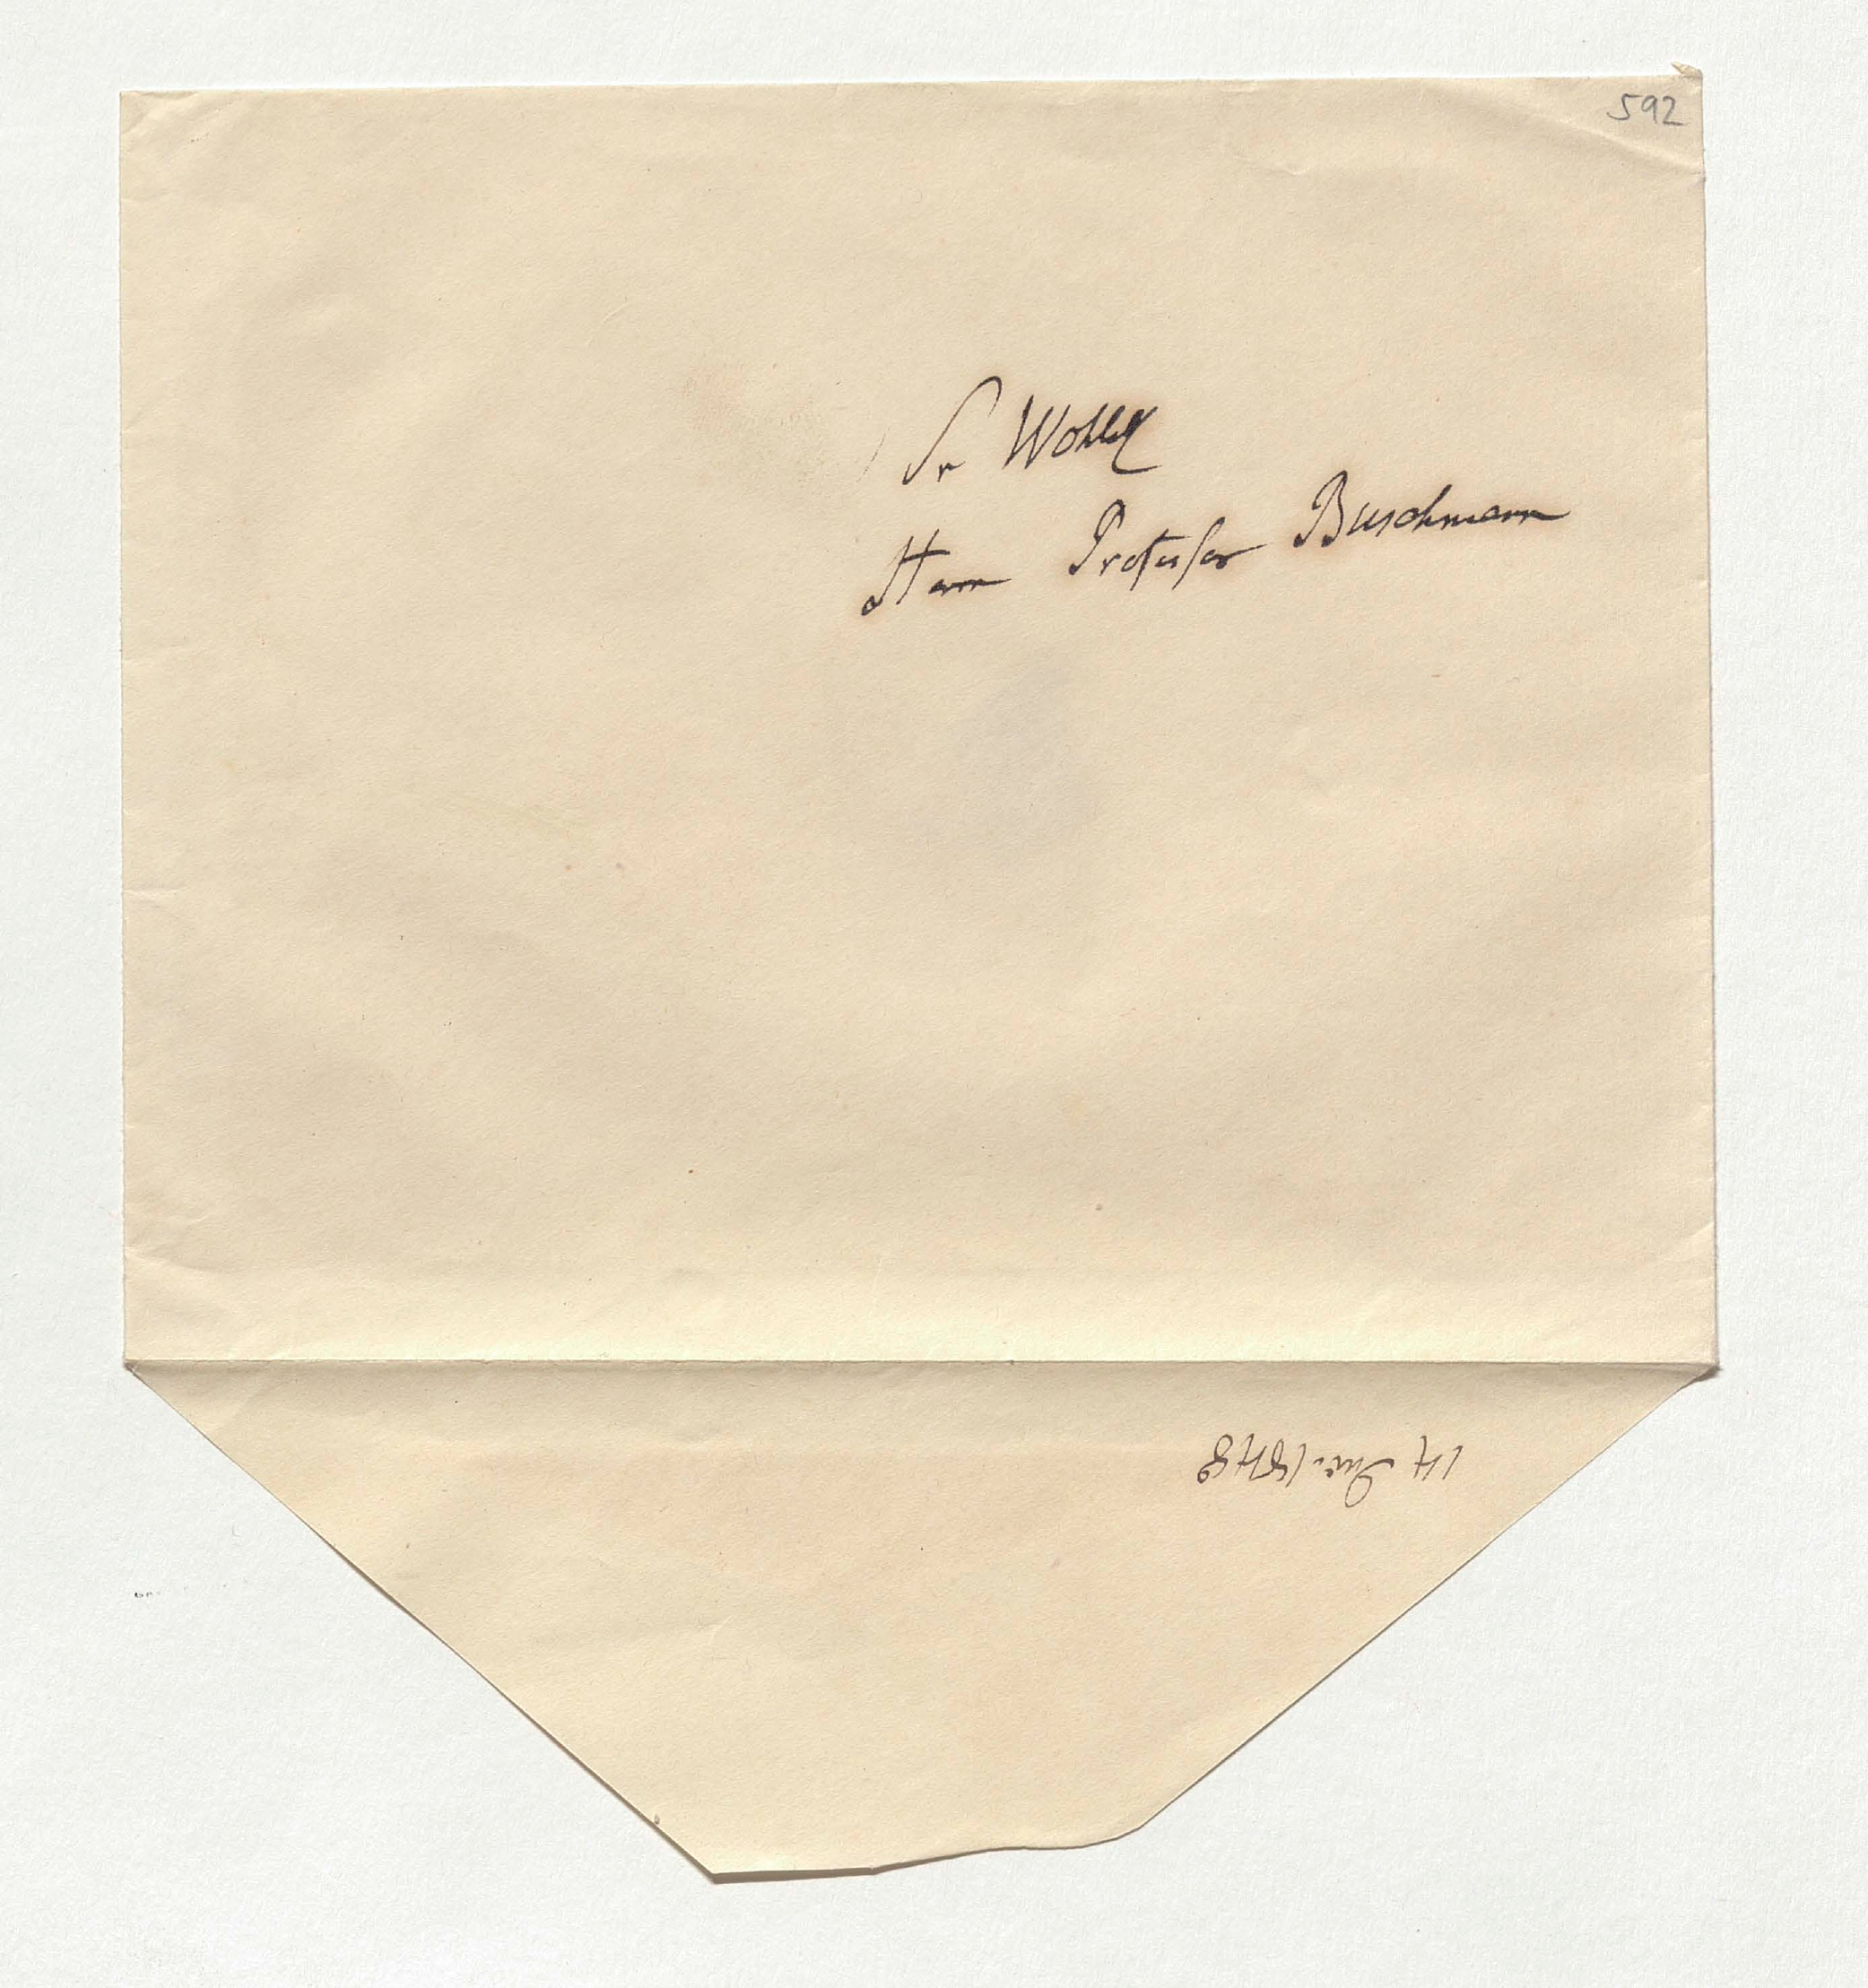 592
Sr Wohlg
Herrn Professor Buschmann
14 Dec. 1848